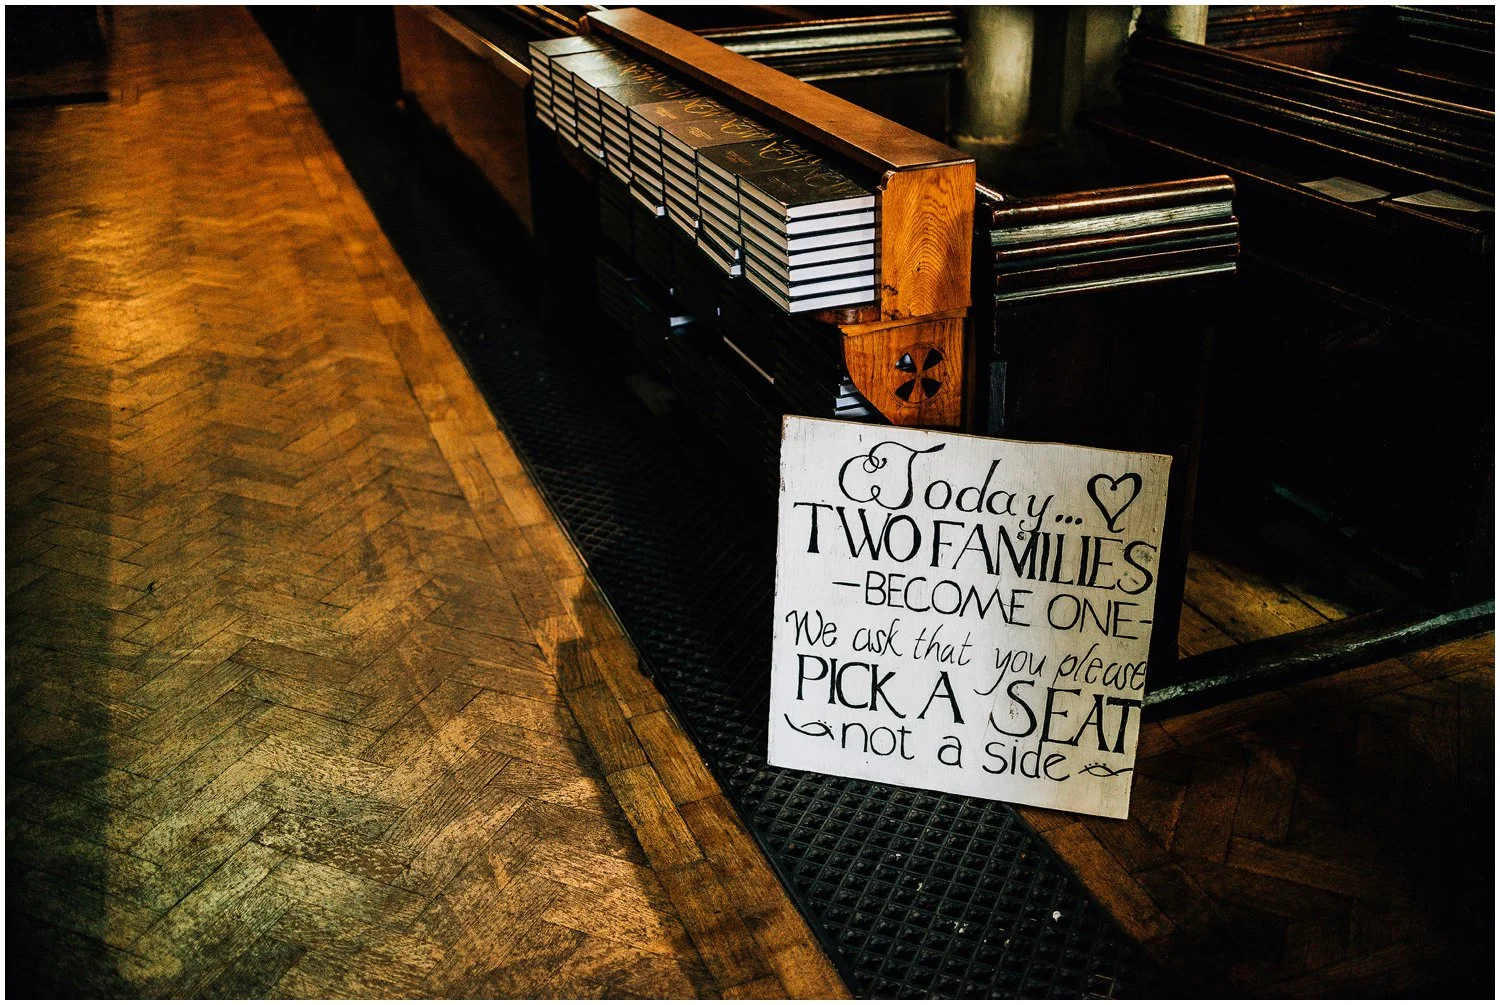 Today...
TWO FAMILIES
- BECOME ONE -
We ask that you please
PICK A SEAT
not a side